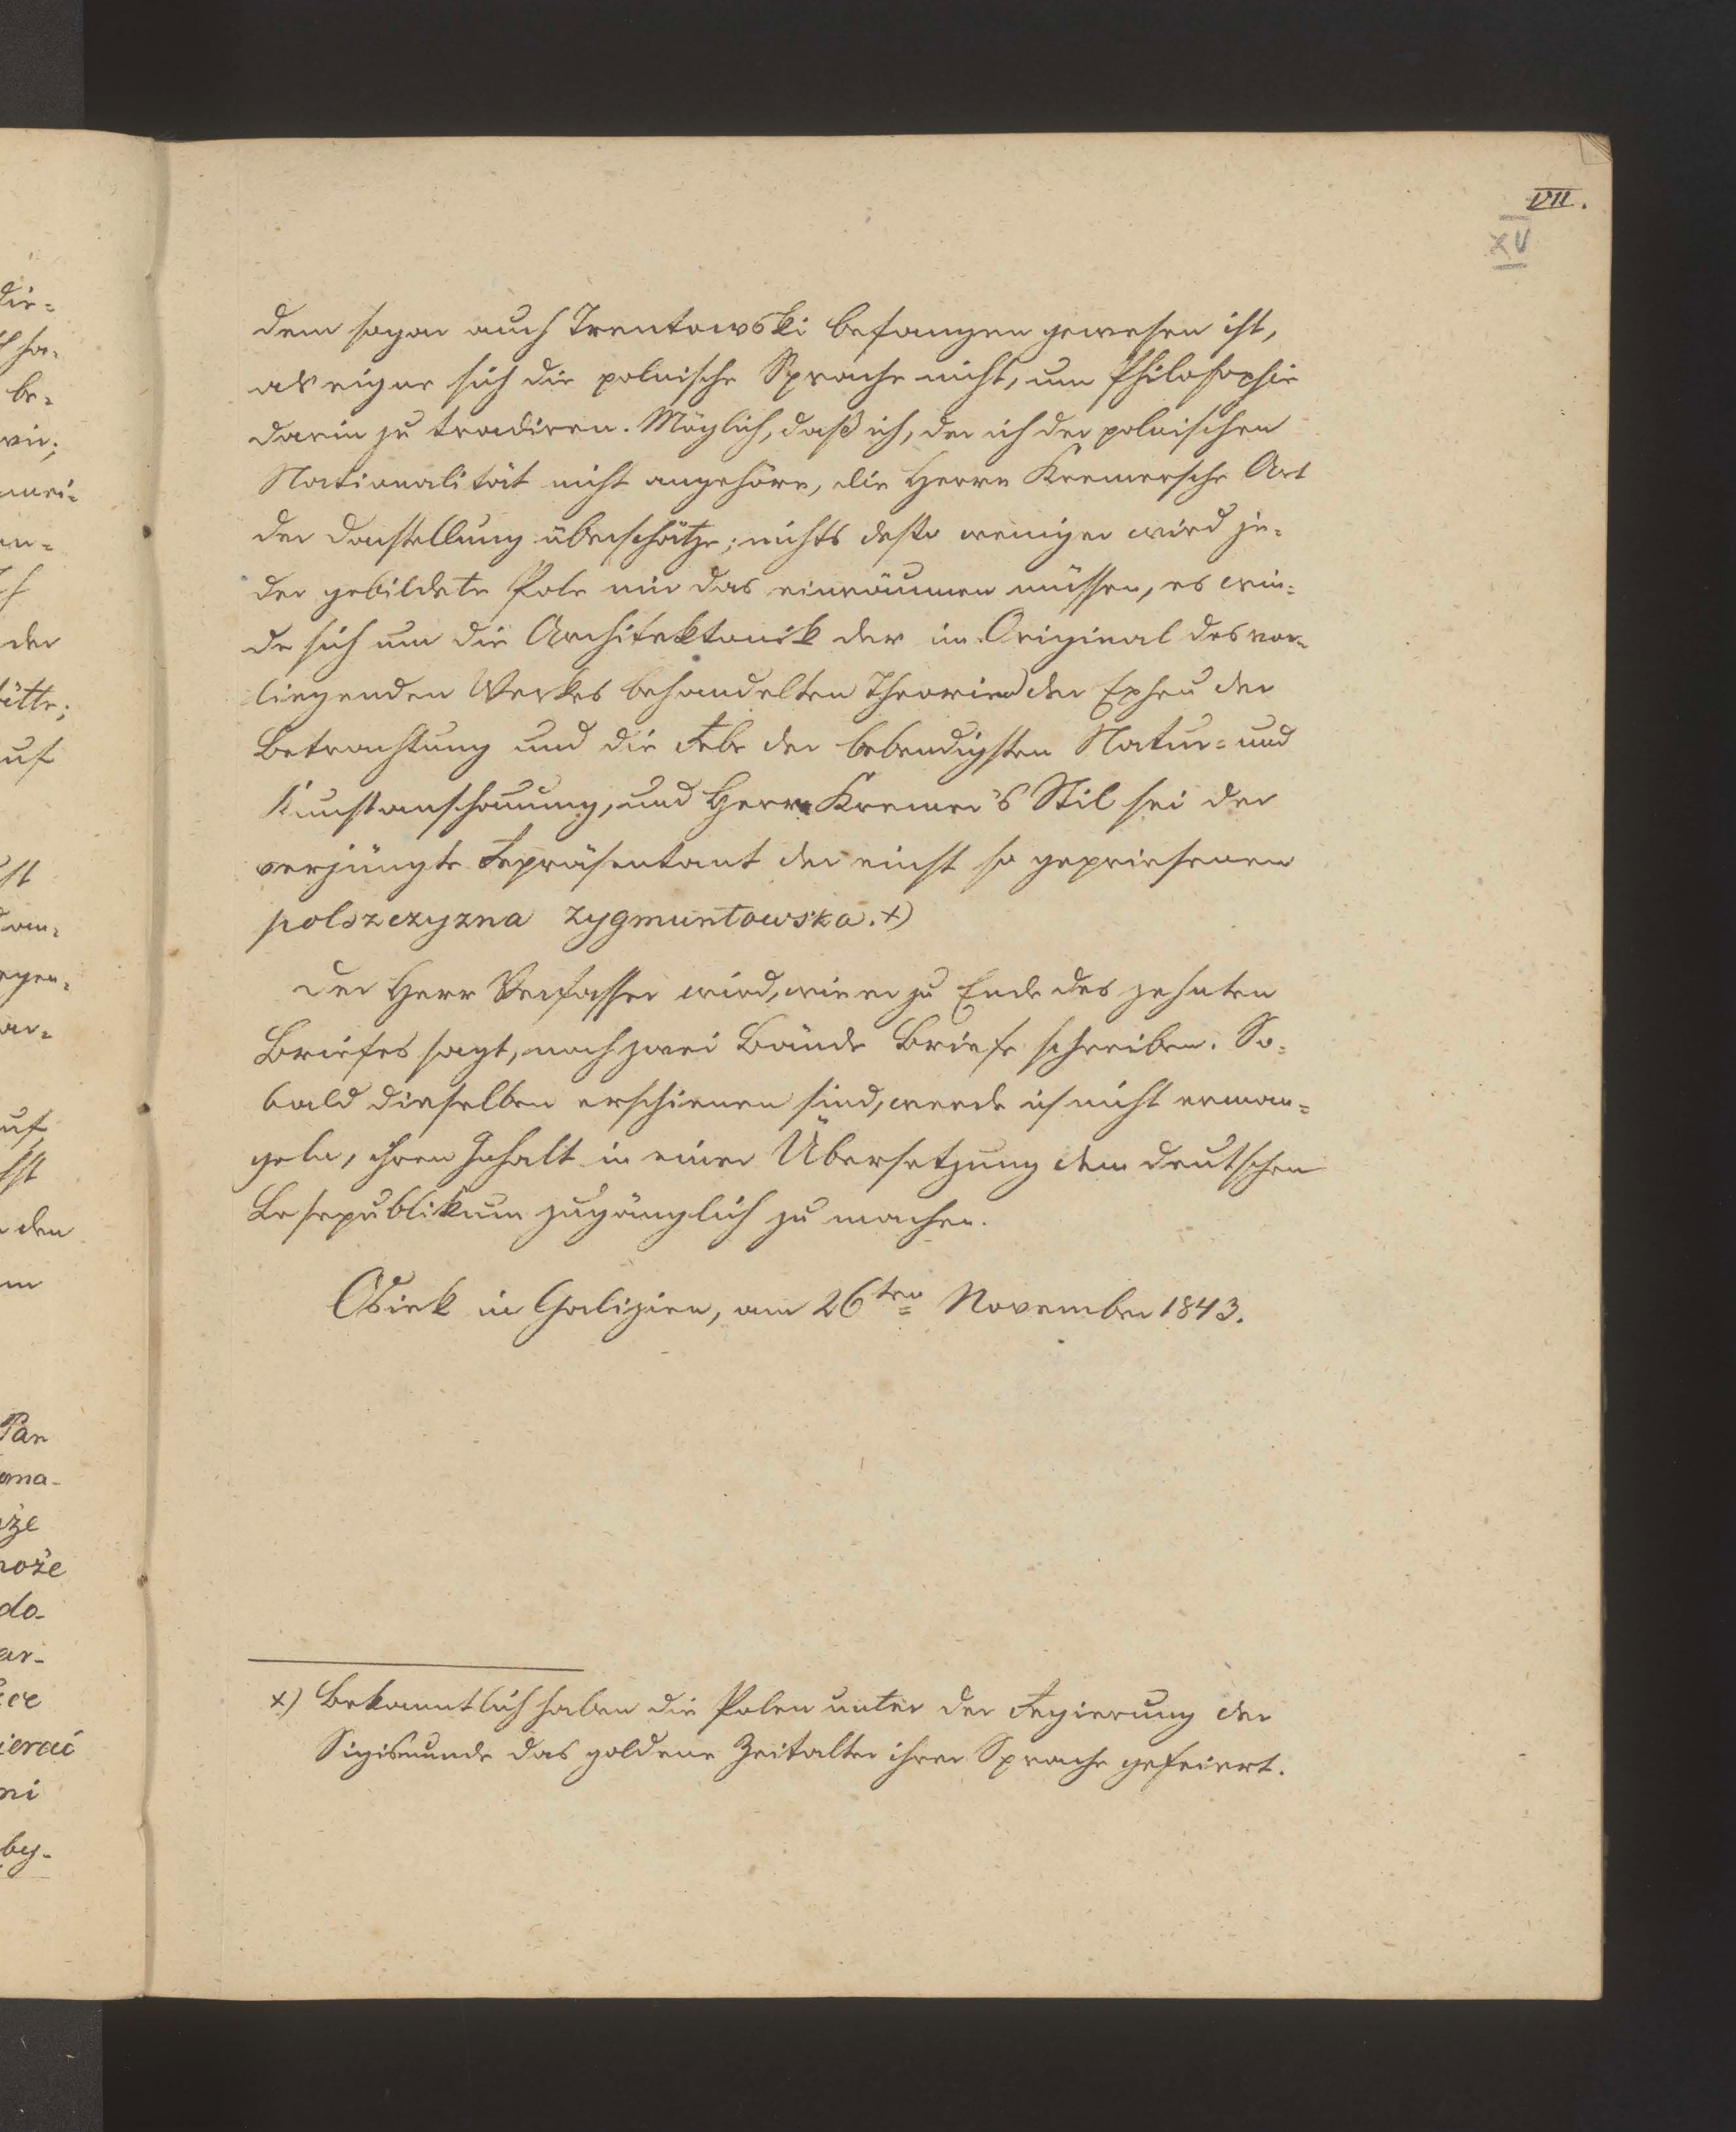 VII.
XV
dem sogar auch Trentowski befangen gewesen ist,
als eigne sich die polnische Sprache nicht, um Philosophie
darin zu tradiren. Möglich, daß ich, der ich der polnischen
Nationalität nicht angehöre, die Herrn Kremersche Art
der Darstellung überschätze; nichts desto weniger wird je=
der gebildete Pole mir das einräumen müssen, es win=
de sich um die Architektonik der im Original des vor=
liegenden Werkes behandelten Theorien der Epheu der
Betrachtung und die Rebe der lebendigsten Natur= und
Kunstanschauung, und Herrn Kremer's Stil sei der
verjüngte Repräsentant der einst so gepriesenen
polszczyzna zygmuntowska. x)
Der Herr Verfasser wird, wie er zu Ende des zehnten
Briefes sagt, noch zwei Bände Briefe schreiben. So=
bald dieselben erschienen sind, werde ich nicht erman=
geln, ihren Inhalt in einer Übersetzung dem deutschen
Lesepublikum zugänglich zu machen.
Osiek in Galizien, am 26ten November 1843.
x) Bekanntlich haben die Polen unter der Regierung der
Sigismunde das goldene Zeitalter ihrer Sprache gefeiert.